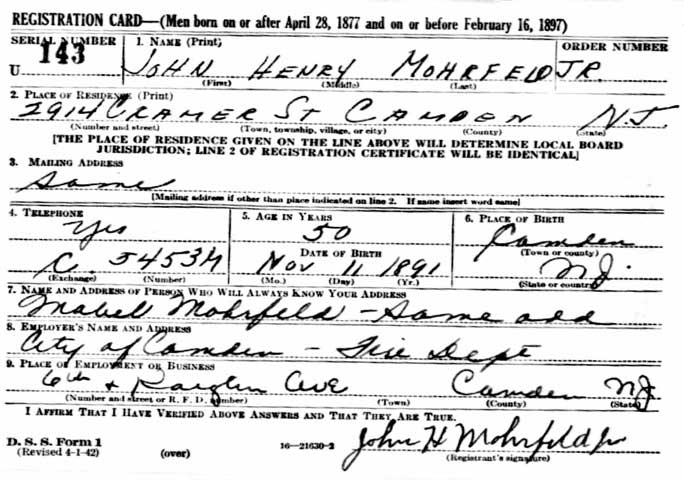 REGISTRATION CARD—(Men born on or after April 28, 1877 and on or before February 16, 1897)
SERIAL NUMBER 1. NAME (Print) ORDER NUMBER
U 143 JOHN HENRY MOHRFELD JR.
(First) (Middle) (Last)
2. PLACE OF RESIDENCE (Print)
2914 CRAMER ST CAMDEN N.J.
(Number and street) (Town, township, village, or city) (County) (State)
[THE PLACE OF RESIDENCE GIVEN ON THE LINE ABOVE WILL DETERMINE LOCAL BOARD
JURISDICTION; LINE 2 OF REGISTRATION CERTIFICATE WILL BE IDENTICAL]
3. MAILING ADDRESS
Same
[Mailing address if other than place indicated on line 2. If same insert word same]
4. TELEPHONE 5. AGE IN YEARS 6. PLACE OF BIRTH
Yes 50 Camden
DATE OF BIRTH (Town or county)
C. 5453M Nov 11 1891 N.J.
(Exchange) (Number) (Mo.) (Day) (Yr.) (State or country)
7. NAME AND ADDRESS OF PERSON WHO WILL ALWAYS KNOW YOUR ADDRESS
Mabel Mohrfeld - Same add
8. EMPLOYER'S NAME AND ADDRESS
City of Camden - Fire Dept
9. PLACE OF EMPLOYMENT OR BUSINESS
6th & Ave Camden NJ
(Number and street or R. F. D. number) (Town) (County) (State)
I AFFIRM THAT I HAVE VERIFIED ABOVE ANSWERS AND THAT THEY ARE TRUE.
D. S. S. Form 1 16—21630-2 John H Mohrfeld Jr
(Revised 4-1-42) (over) (Registrant's signature)